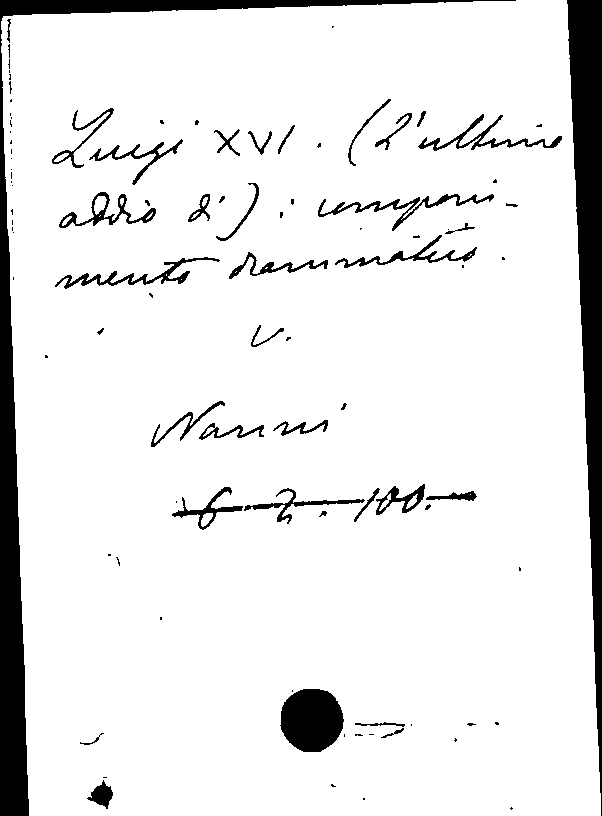 Luigi XVI. (L'ultimo
addio di) : componi-
mento drammatico.
v.
Nanni
6 Z. 100.